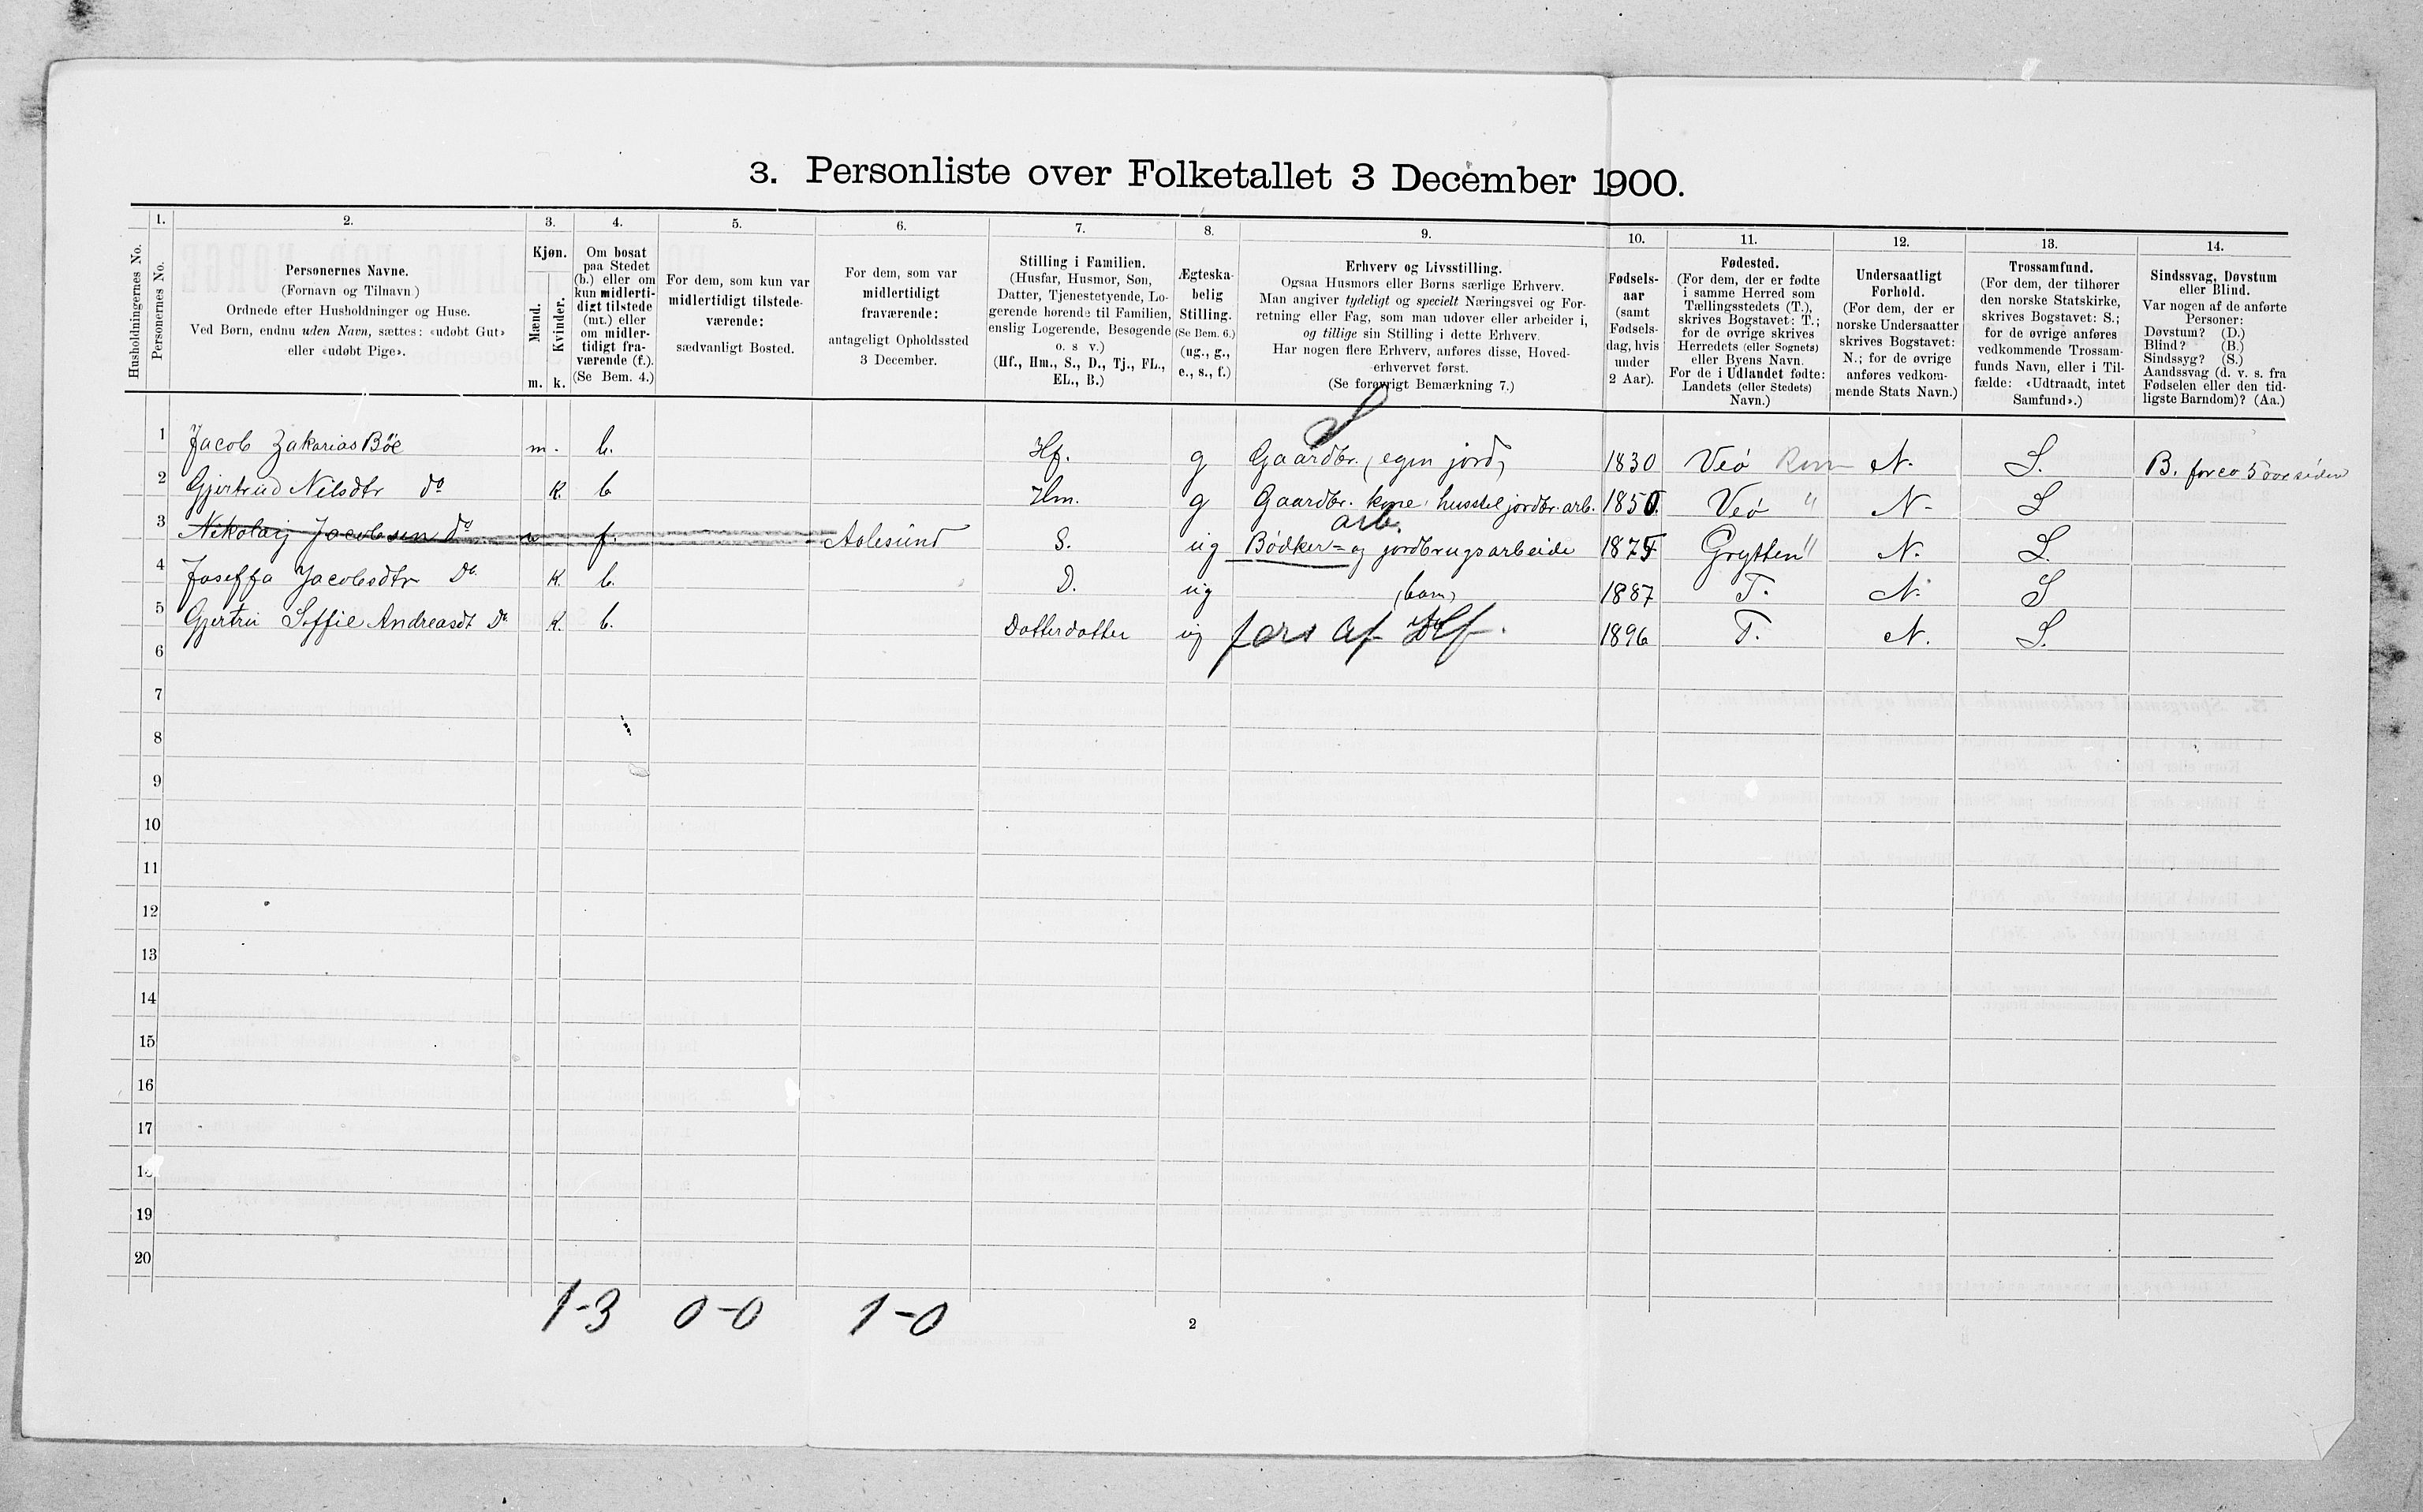 3. Personliste over Folketallet 3 December 1900.
1. 2. 3. 4. 5. 6. 7. 8. 9. 10. 11. 12. 13. 14.
Husholdningernes No.
Personernes No.
Personernes Navne.
(Fornavn og Tilnavn)
Ordnede efter Husholdninger og Huse.
Ved Børn, endnu uden Navn, sættes: «udøbt Gut»
eller «udøbt Pige».
Kjøn.
Mænd.
Kvinder.
m. k.
Om bosat
paa Stedet
(b.) eller om
kun midlerti-
digt tilstede
(mt.) eller
om midler-
tidigt fra-
værende (f.).
(Se Bem. 4.)
For dem, som kun var
midlertidigt tilstede-
værende:
sædvanligt Bosted.
For dem, som var
midlertidigt
fraværende:
antageligt Opholdssted
3 December.
Stilling i Familien.
(Husfar, Husmor, Søn,
Datter, Tjenestetyende, Lo-
gerende hørende til Familien,
enslig Logerende, Besøgende
o. s v.)
(Hf., Hm., S., D., Tj., FL.,
EL., B.)
Ægteska-
belig
Stilling.
(Se Bem. 6.)
(ug., g.,
e., s., f.)
Erhverv og Livsstilling.
Ogsaa Husmors eller Børns særlige Erhverv.
Man angiver tydeligt og specielt Næringsvei og For-
retning eller Fag, som man udøver eller arbeider i,
og tillige sin Stilling i dette Erhverv.
Har nogen flere Erhverv, anføres disse, Hoved-
erhvervet først.
(Se forøvrigt Bemærkning 7.)
Fødsels-
aar
(samt
Fødsels-
dag, hvis
under
2 Aar).
Fødested.
(For dem, der er fødte
i samme Herred som
Tællingsstedets (T.),
skrives Bogstavet: T.;
for de øvrige skrives
Herredets (eller Sognets)
eller Byens Navn.
For de i Udlandet fødte:
Landets (eller Stedets)
Navn.)
Undersaatligt
Forhold.
(For dem, der er
norske Undersaatter
skrives Bogstavet:
N.; for de øvrige
anføres vedkom-
mende Stats Navn.)
Trossamfund.
(For dem, der tilhører
den norske Statskirke,
skrives Bogstavet: S.;
for de øvrige anføres
vedkommende Trossam-
funds Navn, eller i Til-
fælde: «Udtraadt, intet
Samfund».)
Sindssvag, Døvstum
eller Blind.
Var nogen af de anførte
Personer:
Døvstum? (D.)
Blind? (B.)
Sindssyg? (S.)
Aandssvag (d. v. s. fra
Fødselen eller den tid-
ligste Barndom)? (Aa.)
1 Jacob Zakarias Böe m. b. Hf. g Gaardbr. (egen jord) 1830 Veö Rom N. S. B. for ca 5 aar siden
2 Gjertrud Nilsdtr do K. b Hm. g Gaardbr. kone, husstel jordbr. arb. 1850 Veö " N. S
arb.
3 Nikolaij Jacobsen do m f. Aalesund S. ug Bödker= og jordbrugsarbeide 1875 Grytten " N. S.
4 Joseffa Jacobsdtr Do. K. b. D. ug (barn) 1887 T. N. S
5 Gjertru Soffie Andreasdt Do K. b. Datterdatter ug fors af Hf. 1896 T. N. S.
6
7
8
9
10
11
12
13
14
15
16
17
18
19
20
1-3 0-0 1-0
2